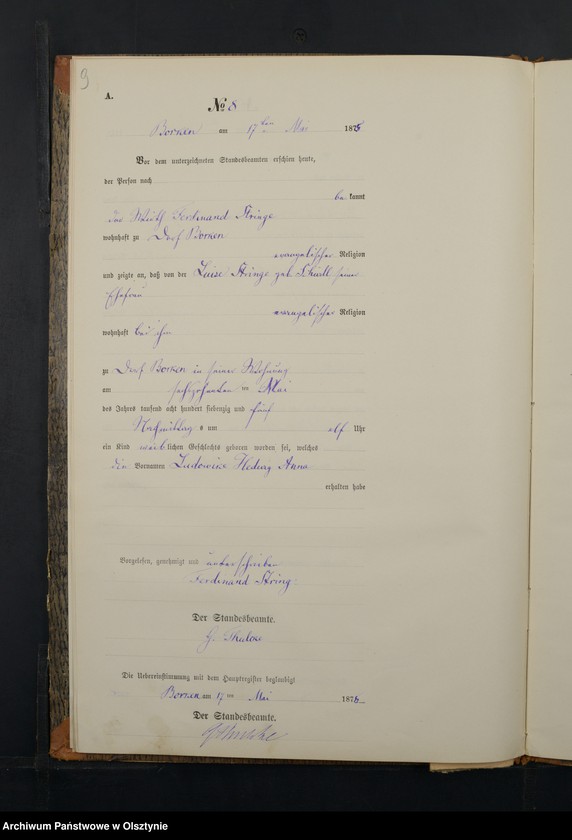 9
A.
No 8
Borken am 17ten Mai 1875
Vor dem unterzeichneten Standesbeamten erschien heute,
der Person nach
bekannt
der Wirth Ferdinand String
wohnhaft zu Dorf Borken
evangelischer Religion
und zeigte an, daß von der Luise String geb. seiner
Ehefrau
evangelischer Religion
wohnhaft bei ihm
zu Dorf Borken in seiner Wohnung
am sechszehnten ten Mai
des Jahres tausend acht hundert siebenzig und fünf
Nachmittags um elf Uhr
ein Kind weiblichen Geschlechts geboren worden sei, welches
die Vornamen Ludowike Hedwig Anna
erhalten habe
Vorgelesen, genehmigt und unterschrieben
Ferdinand String
Der Standesbeamte.
Die Uebereinstimmung mit dem Hauptregister beglaubigt
Borken am 17 ten Mai 1875
Der Standesbeamte.
Archiwum Państwowe w Olsztynie